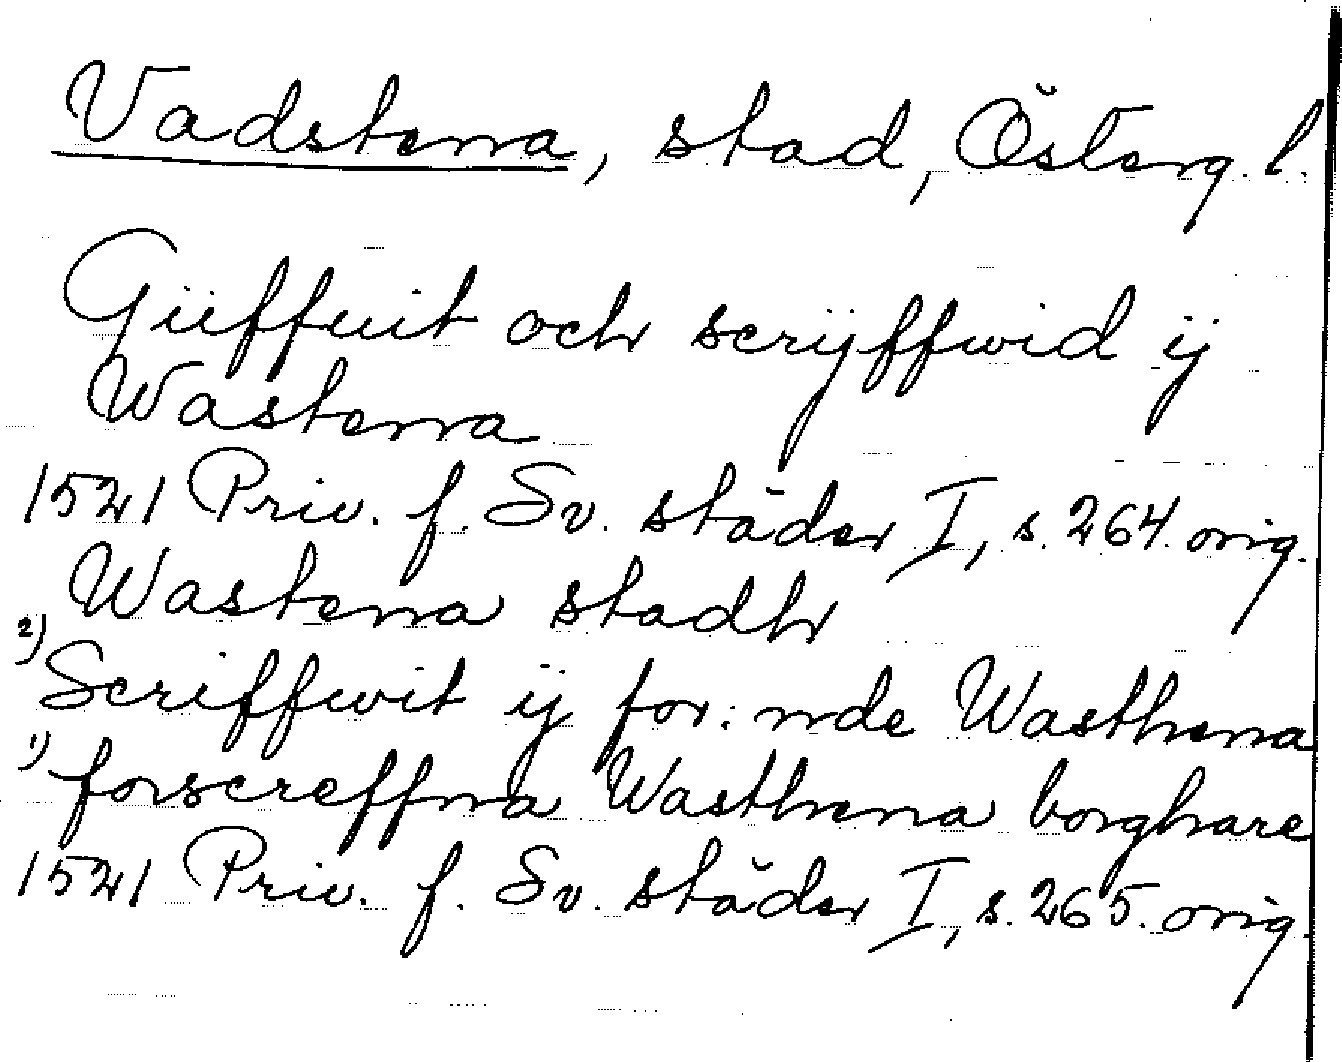 Vadstena, stad, Österg. l.
Giiffuit och scrijffwid ij
Wastena
1521 Priv. f. Sv. städer I, s. 264. orig.
Wastena stadh
2) Scriffwit ij for:nde Wasthena
1) forscreffna Wasthena borghare
1521 Priv. f. Sv. städer I, s. 265. orig.